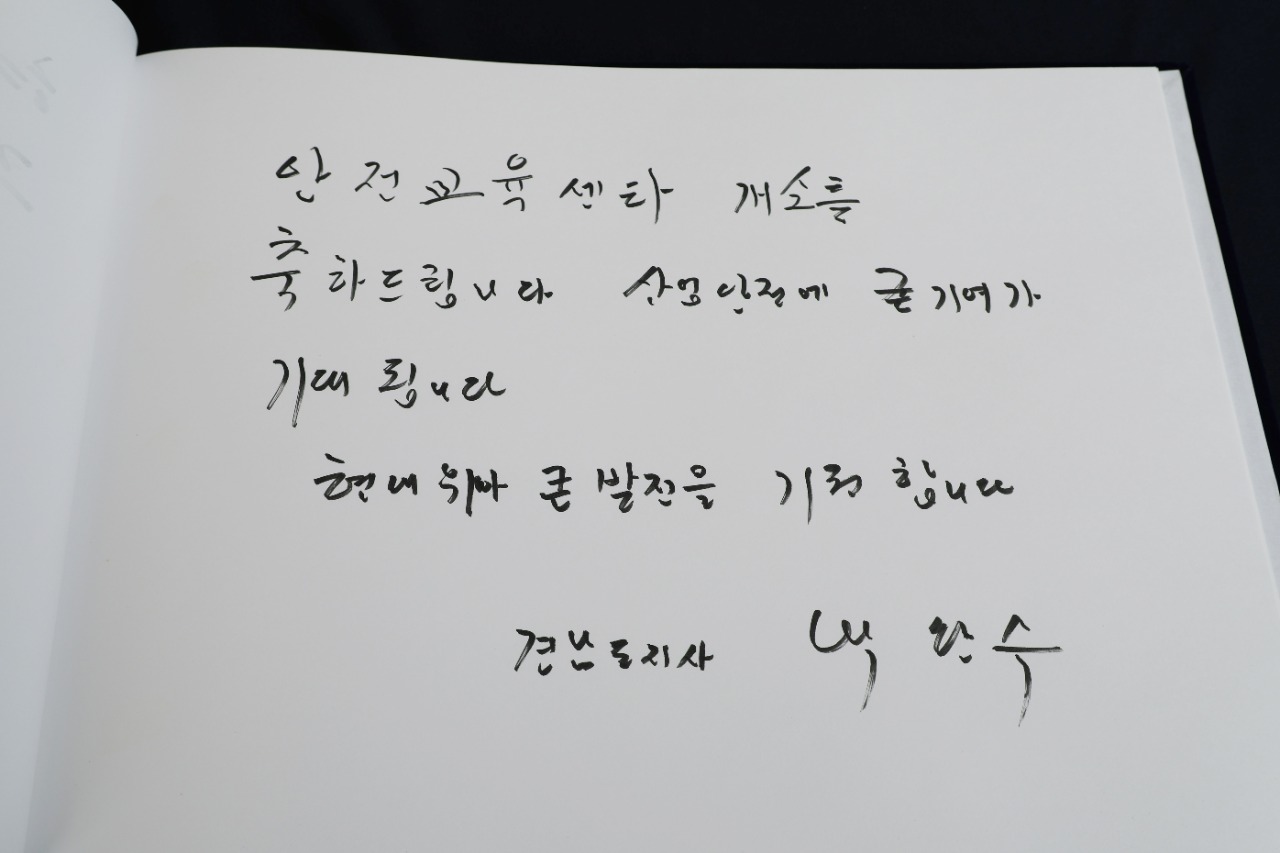 안전교육센타 개소를
축하드립니다 산업안전에 큰 기여가
기대 됩니다
현대위아 큰 발전을 기원 합니다
경남도지사 박완수